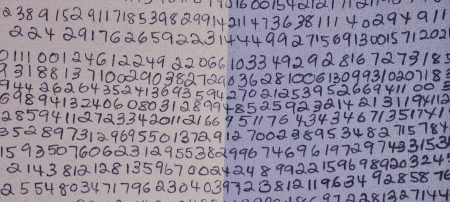 2389152911718539829914211473638111402949 11
224291762659223144499271569130015712021
0111001246122492206610334929281672731 85
931881371002903827290362810061309931020718
944262643524136935942702125395266941100
698941322406080312899485259232142131194 12
2859411272334201121669511764343467135171
35289731296955013729127002389534827157 84
159350760623129553829967469619729743 3153
2143812128135967002424899221596989203245
2554803471796230403972381211963492858 76